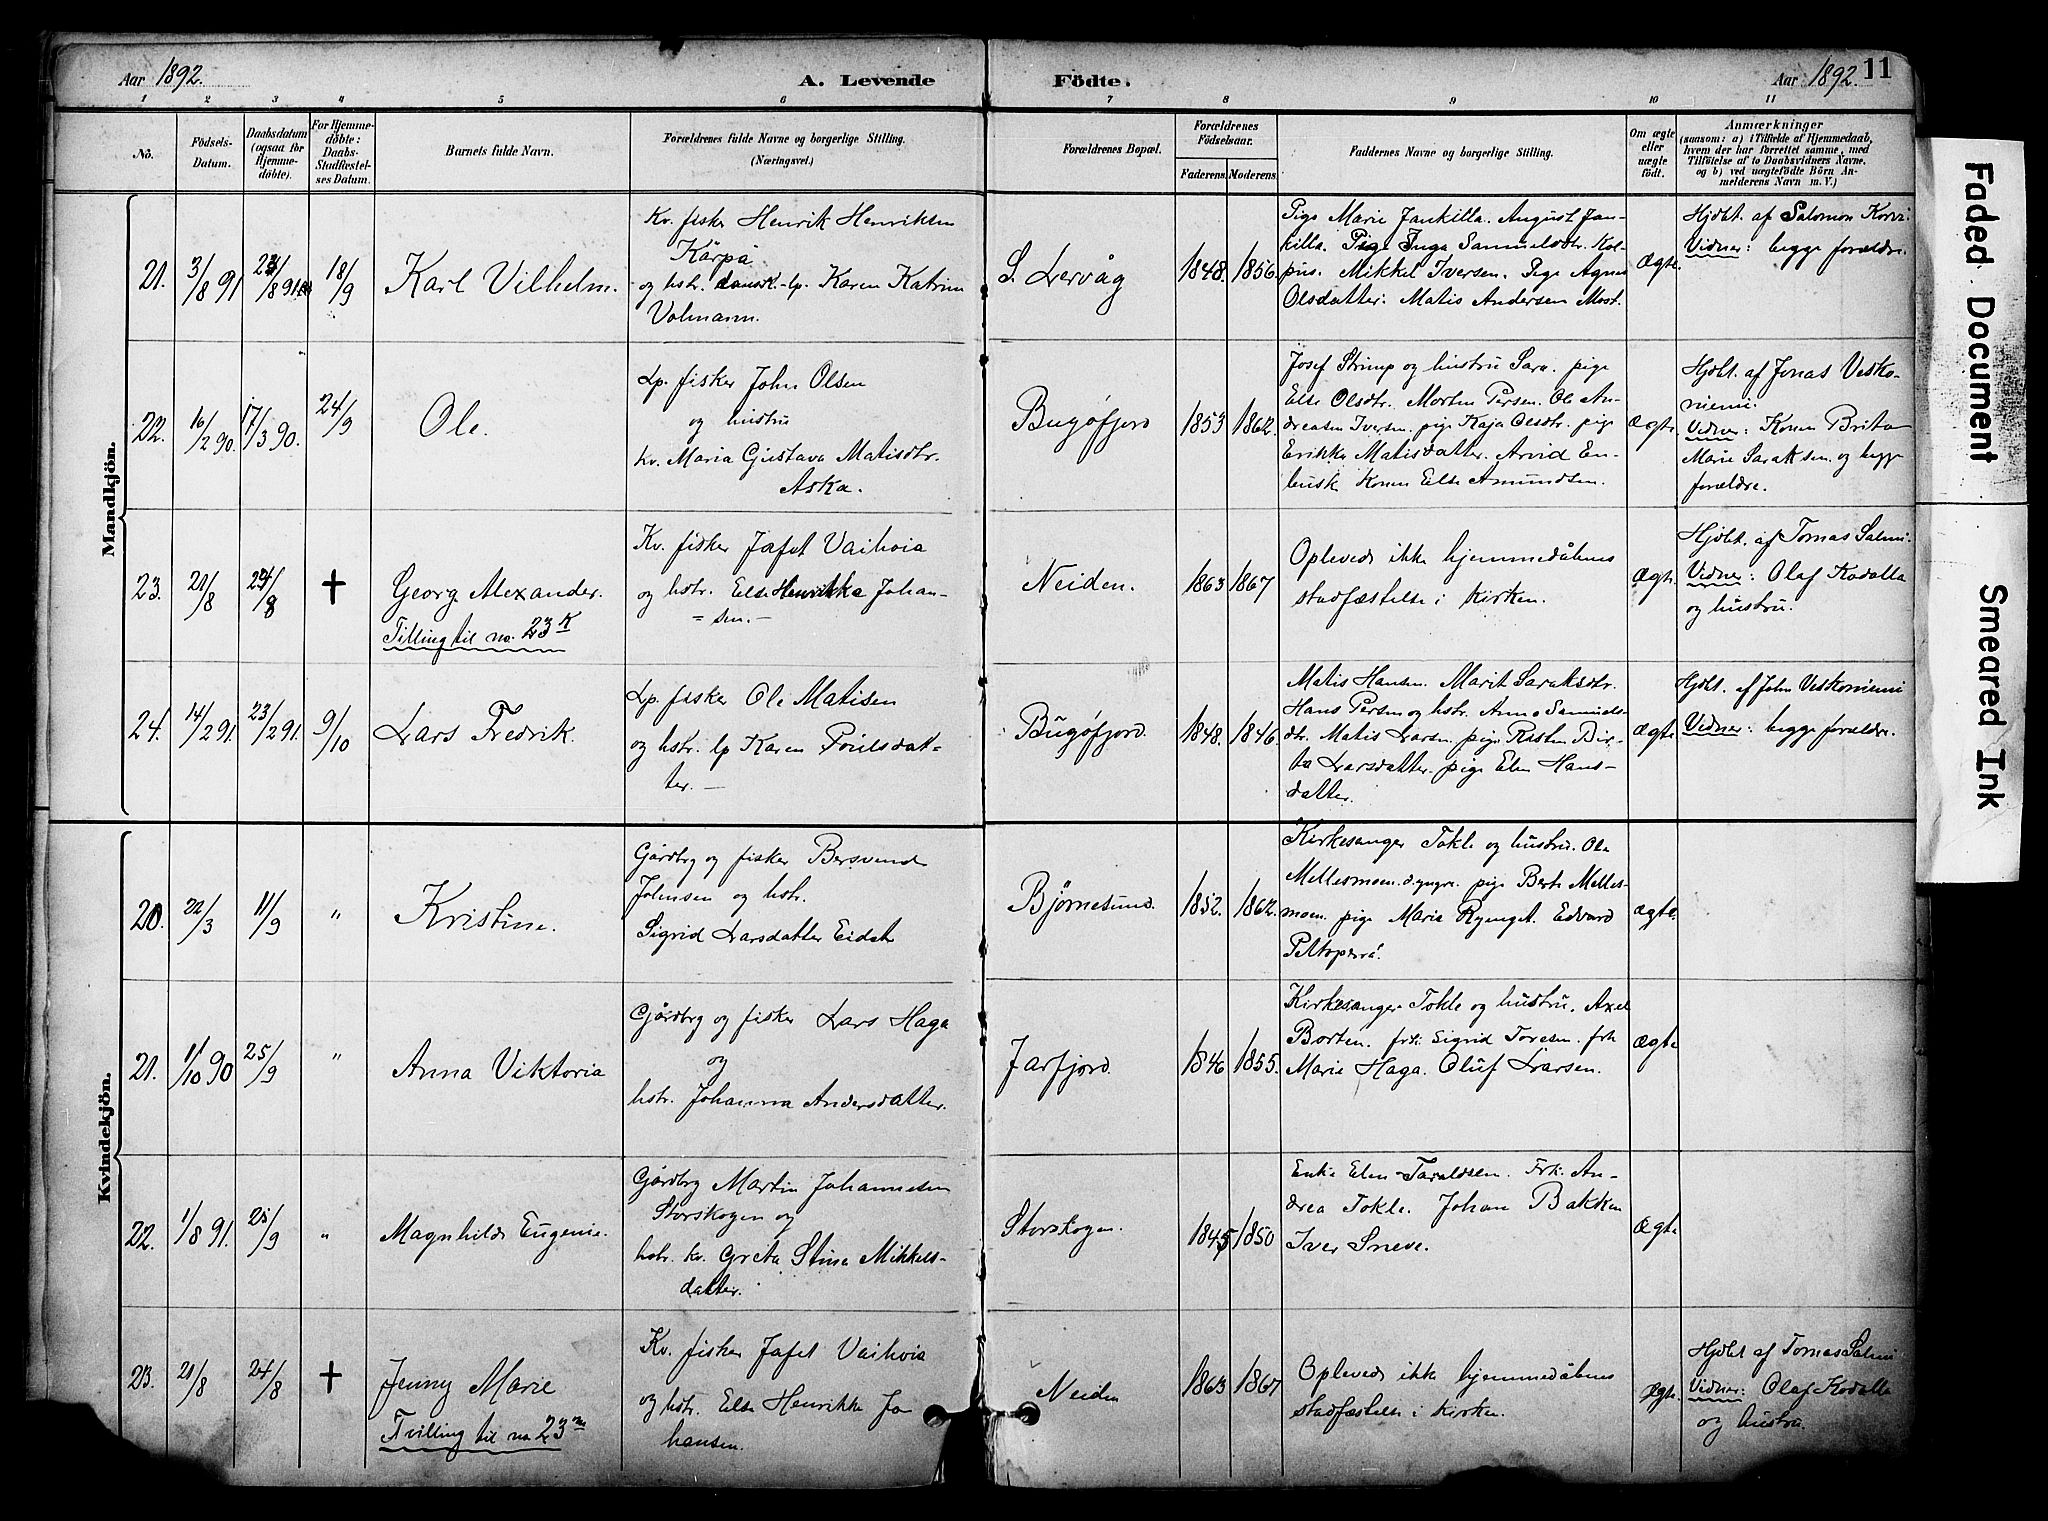 Aar 1892.
A. Levende
Födte.
Aar 1892.
11
1 2 3 4 5 6 7 8 9 10 11
No.
Födsels-
Datum.
Daabsdatum
(ogsaa for
Hjemme-
döbte).
For Hjemme-
döbte:
Daabs-
Stadfæstel-
ses Datum.
Barnets fulde Navn.
Forældrenes fulde Navne og borgerlige Stilling.
(Næringsvei.)
Forældrenes Bopæl.
Forældrenes
Födselsaar.
Faderens. Moderens.
Faddernes Navne og borgerlige Stilling.
Om ægte
eller
uægte
födt.
Anmærkninger
(saasom: a) i Tilfælde af Hjemmedaab,
hvem der har forrettet samme, med
Tilföielse af to Daabsvidners Navne.
og b) ved uægtefödte Börn An-
melderens Navn m. V.)
Mandkjön.
21.
3/8 91
23/8 91
18/9
Karl Vilhelm.
Kv. fisker Henrik Henriksen
Kärpä
og hstr. dansk-lp. Karen Katrine
Volmann.
S. Lervåg
1848. 1856.
Pige Marie Jankilla. August Jan-
killa. Pige Inga Sammelsdtr. Kol-
pus. Mikkel Iversen. Pige Agnes
Olsdatter. Matis Andersen Most.
Ægte.
Hjdbt. af Salomon Korvi.
Vidner: begge forældre.
22.
16/2 90.
17/3 90.
24/9
Ole.
Lp. fisker John Olsen
og hustru
kv. Maria Gustava Matisdtr.
Aska.
Bugøfjord
1853 1862.
Josef Strimp og hustru Sara. pige
Else Olsdtr. Morten Persen. Ole An-
dreasen Iversen. pige Kaja Olsdtr. pige
Erikka Matisdatter. Arvid En-
busk Konen Else Amundsen.
Ægte.
Hjdbt. af Jonas Vesko-
niemi.
Vidner: Konen Brita
Marie Saraksen. og begge
forældre.
23.
21/8
24/8
✝
Georg Alexander.
Tilling til no. 23 K
Kv. fisker Jafet Vaihoia
og hstr. Else Henrikka Johan-
= sen.-
Neiden.
1863 1867
Oplevede ikke hjemmedåbens
stadfæstelse i kirken.
Ægte.
Hjdbt. af Tomas Salmi.
Vidner: Olaf Kodalla
og hustru.
24.
14/2 91.
23/2 91.
9/10
Lars Fredrik.
Lp. fisker Ole Matisen
og hstr. lp Karen Poulsdat-
ter.-
Bugøfjord.
1848. 1846.
Matis Hansen. Marit Saraksdtr.
Hans Persen og hstr. Anna Samuels-
dtr. Matis Larsen. pige Kirsten Bir-
ta Larsdatter. pige Elen Hans-
datter.
Ægte
Hjdbt. af John Veskoniemi
Vidner: begge forældre.
Kvindekjön.
20.
22/3
11/9
"
Kristine.
Gårdbrg og fisker Bersvend
Johnsen og hstr.
Sigrid Larsdatter Eidet
Bjørnesund.
1852. 1862.
Kirkesanger Tokle og hustru. Ole
Mellesmoen d.yngre. pige Berte Melles-
moen. pige Maria Rynget. Edvard
Peltoperä.
ægte.
21.
1/10 90
25/9
"
Anna Viktoria
Gårdbrg og fisker Lars Haga
og
hstr. Johanna Andersdatter.
Jarfjord.
1846 1855.
Kirkesanger Tokle og hustru. Axel
Borten. frk: Sigrid Toresen. frk
Marie Haga. Oluf Larsen.
Ægte
22.
1/8 91.
25/9
"
Magnhild Eugenie.
Gårdbrg Martin Johannesen
Storskogen og
hstr. kv. Greta Stina Mikkels-
datter.
Storskogen.
1845 1850
Enke Elen Taraldsen. Frk: An-
drea Tokle. Johan Bakken
Iver Sneve.
Ægte
23.
21/8
24/8
✝
Jenny Marie
Tvilling til no 23 m
Kv. fisker Jafet Vaihoia
og hstr. Else Henrikke Jo
hansen.
Neiden
1863 1867
Oplevede ikke hjemmedåbens
stadfæstelse i kirken.
Ægte.
Hjdbt af Tomas Salmi
Vidner: Olaf Kodalla
og hustru.
Faded Document
Smeared Ink